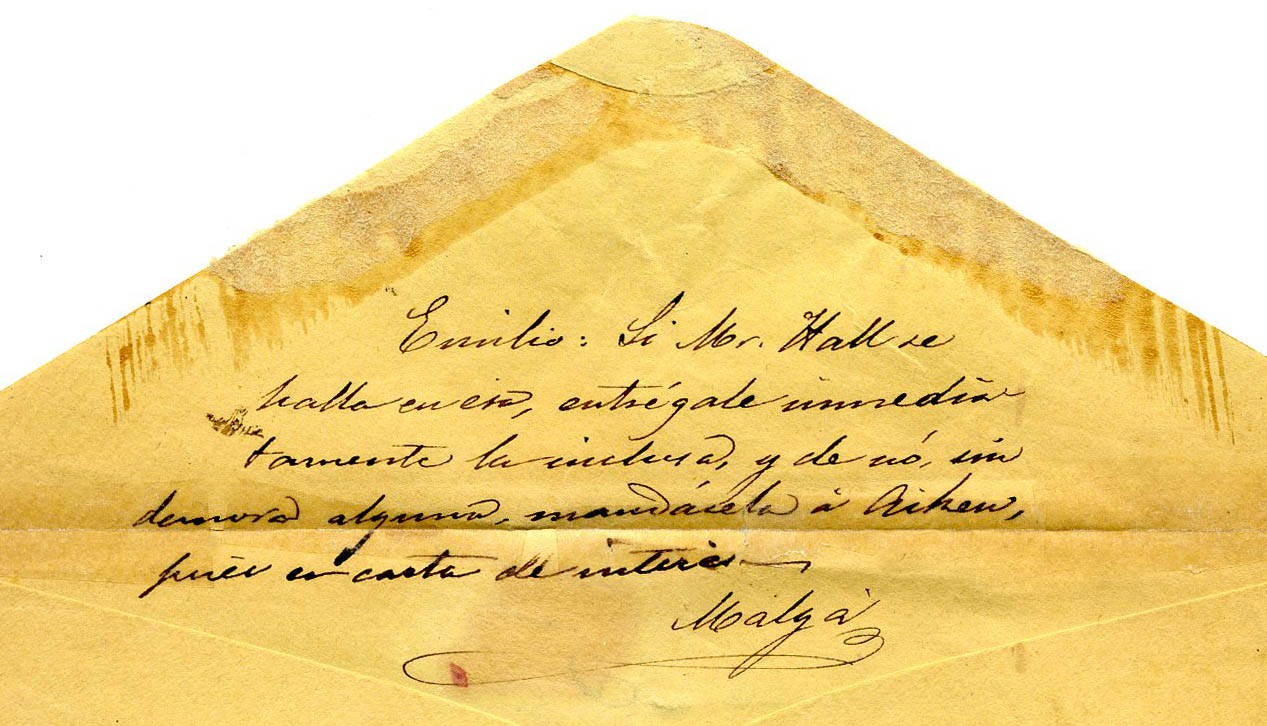 Emilio: Si Mr. Hall se
halla en esa, entrégale inmedia
tamente la inclusa, y de nó, sin
demora alguna, mandásela á Aiken,
pués es carta de interes
Malga